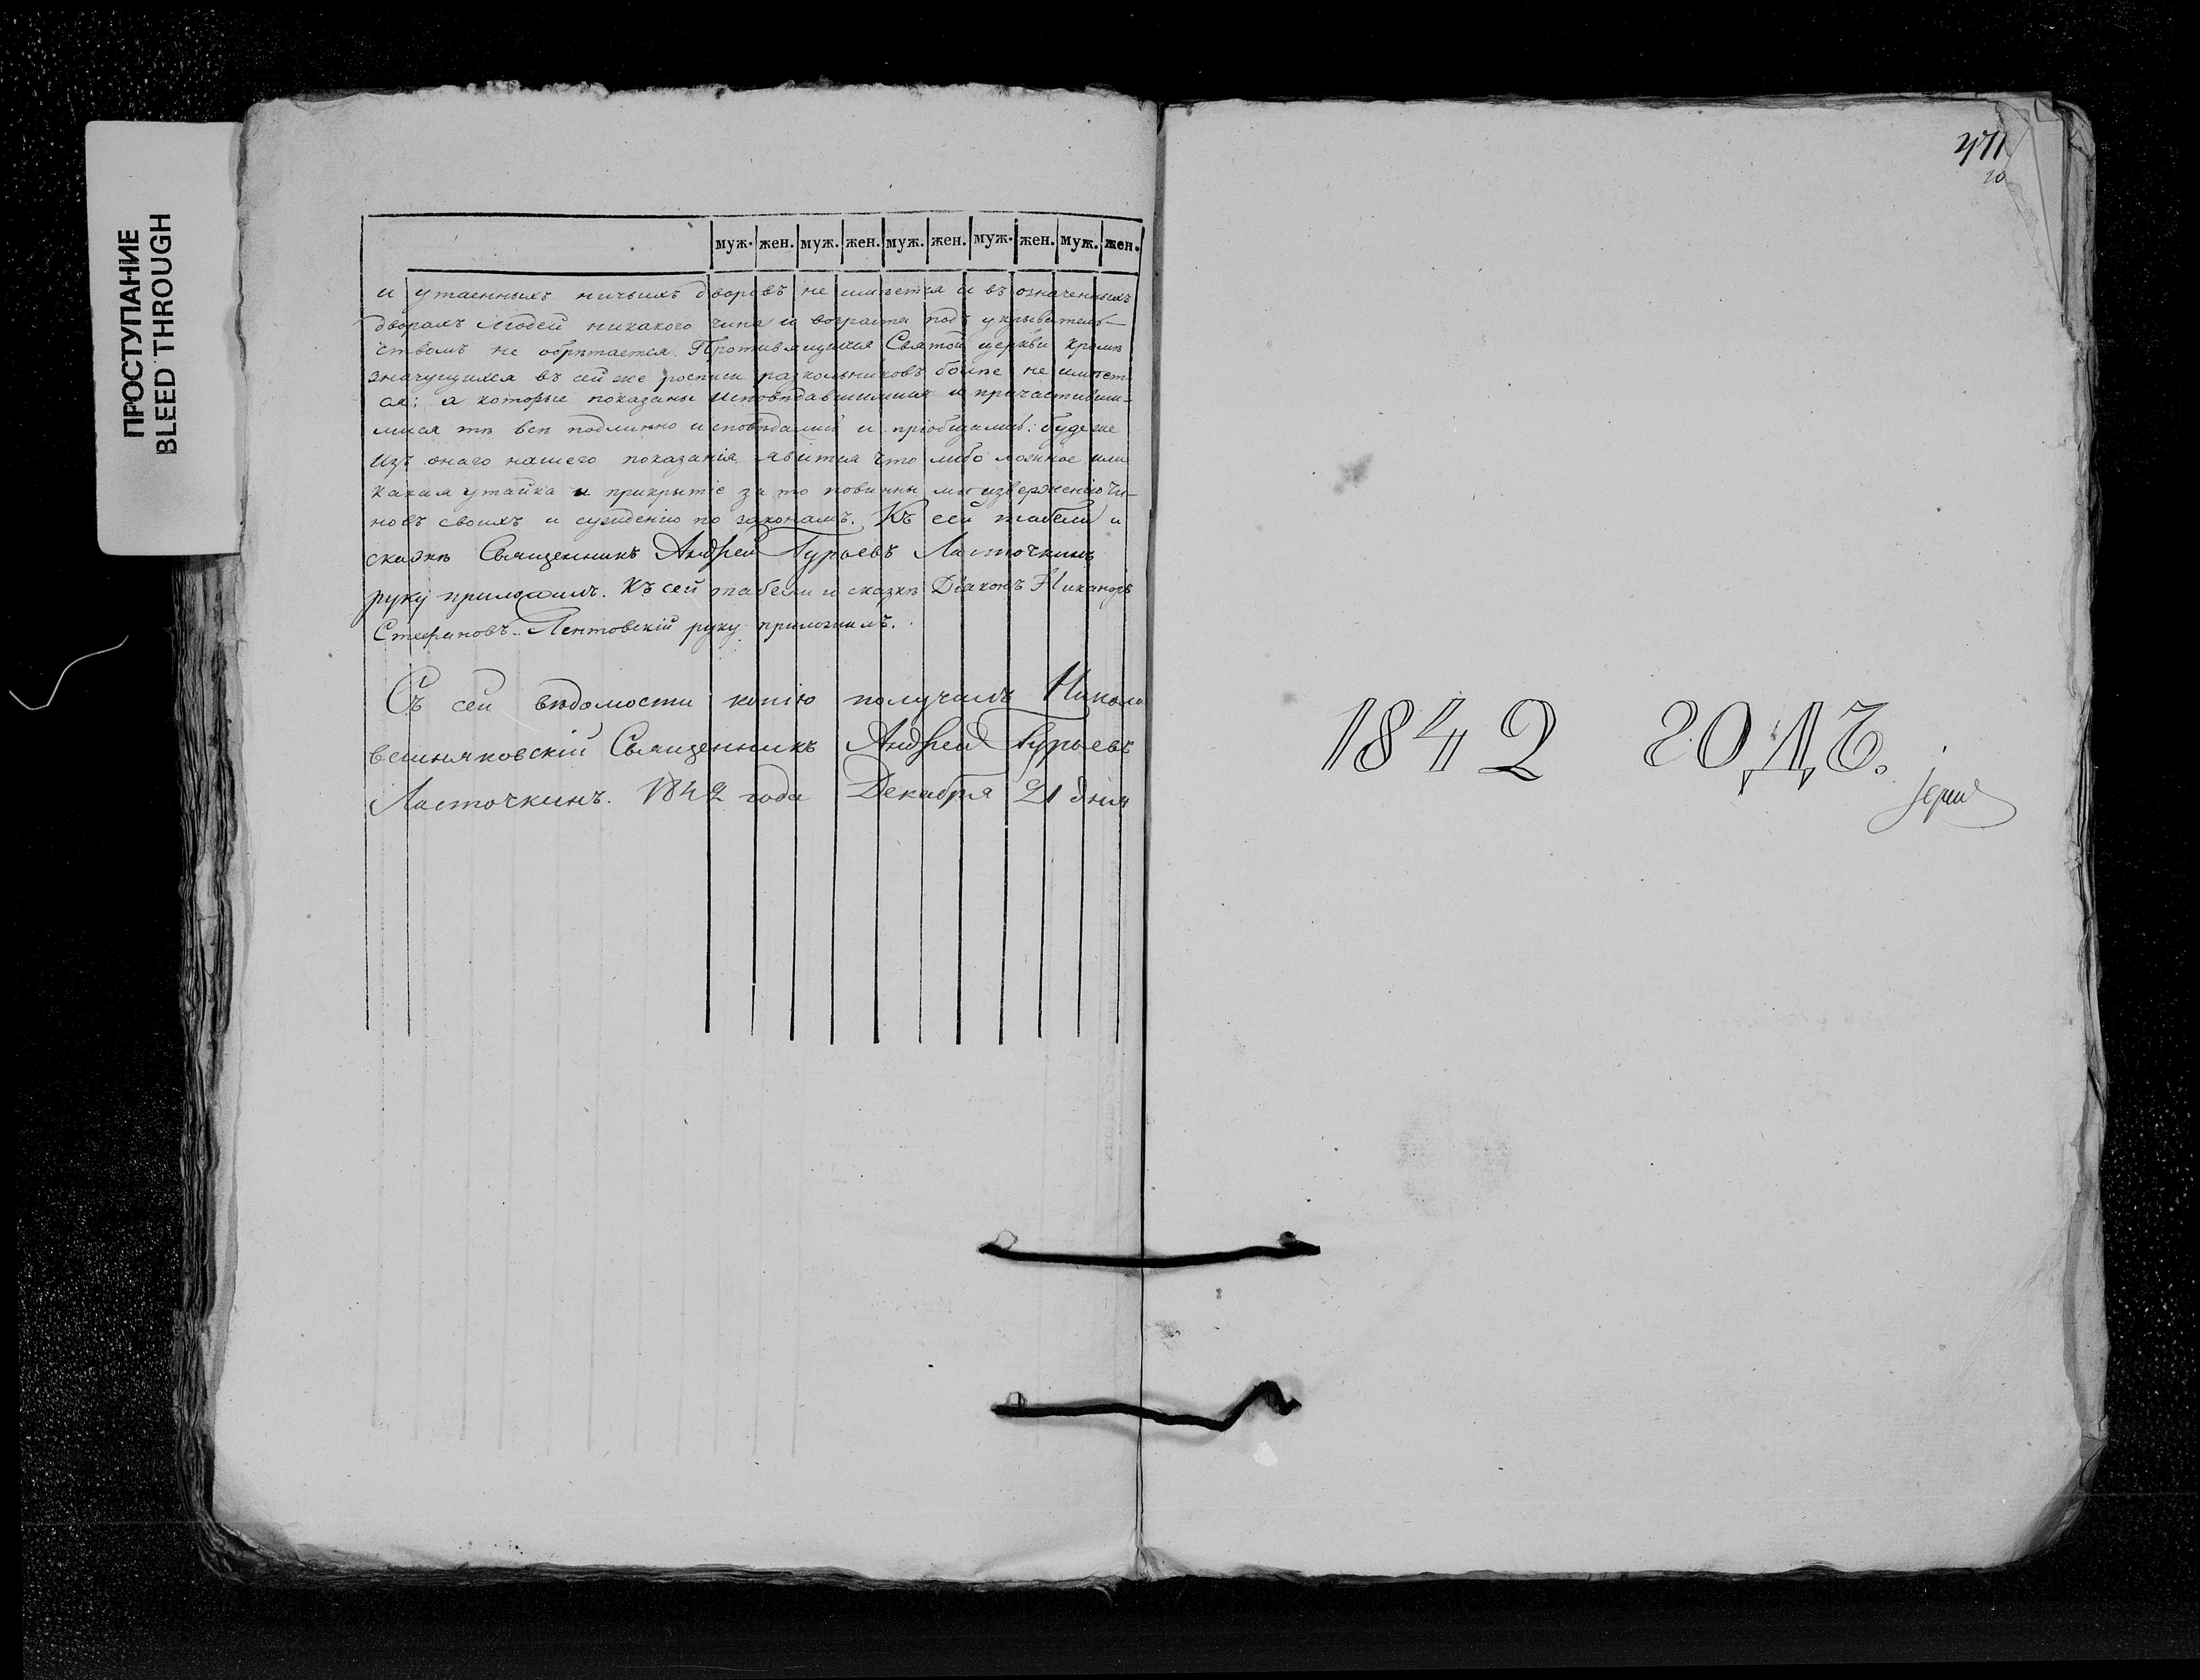 ПРОСТУПАНИЕ
BLEED THROUGH
муж. жен. муж. жен. муж. жен. муж. жен. муж. жен.
и утаенныхъ ничьихъ дворовъ не имѣется и въ означенныхъ
дворахъ людей никакого чина и возраста подъ укрыватель-
ствомъ не обрѣтается. Противящихся Святой церкви кромѣ
значущихся въ сей же росписи раскольниковъ болѣе не имѣет-
ся; а которые показаны исповѣдавшимися и причастивши-
мися тѣ всѣ подлинно исповѣдались и приобщались: буде же
изъ онаго нашего показанія явится что либо ложное или
какая утайка и прикрытіе за то повинны мы изверженію чи-
новъ своихъ и сужденію по законамъ. Къ сей табели и
сказкѣ Священникъ Андрей Гурьевъ Ласточкинъ
руку приложилъ. Къ сей табели и сказкѣ Діаконъ Никаноръ
Стефановъ Лентовскій руку приложилъ.
Съ сей вѣдомости копію получилъ Николо
вешняковскій Священникъ Андрей Гурьевъ
Ласточкинъ. 1842 года Декабря 21 дня
471
20
1842 годъ.